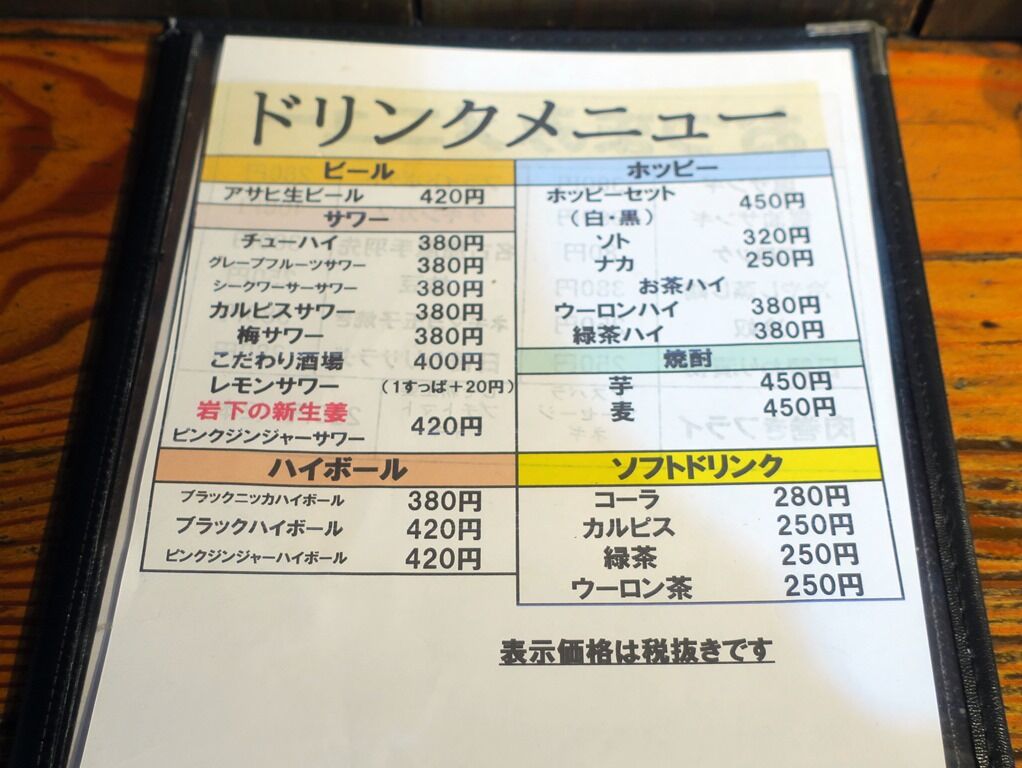 ドリンクメニュー
ビール
アサヒ生ビール 420円
サワー
チューハイ 380円
グレープフルーツサワー 380円
シークワーサーサワー 380円
カルピスサワー 380円
梅サワー 380円
こだわり酒場 400円
レモンサワー (1すっぱ+20円)
岩下の新生姜
ピンクジンジャーサワー 420円
ハイボール
ブラックニッカハイボール 380円
ブラックハイボール 420円
ピンクジンジャーハイボール 420円
ホッピー
ホッピーセット 450円
(白・黒)
ソト 320円
ナカ 250円
お茶ハイ
ウーロンハイ 380円
緑茶ハイ 380円
焼酎
芋 450円
麦 450円
ソフトドリンク
コーラ 280円
カルピス 250円
緑茶 250円
ウーロン茶 250円
表示価格は税抜きです